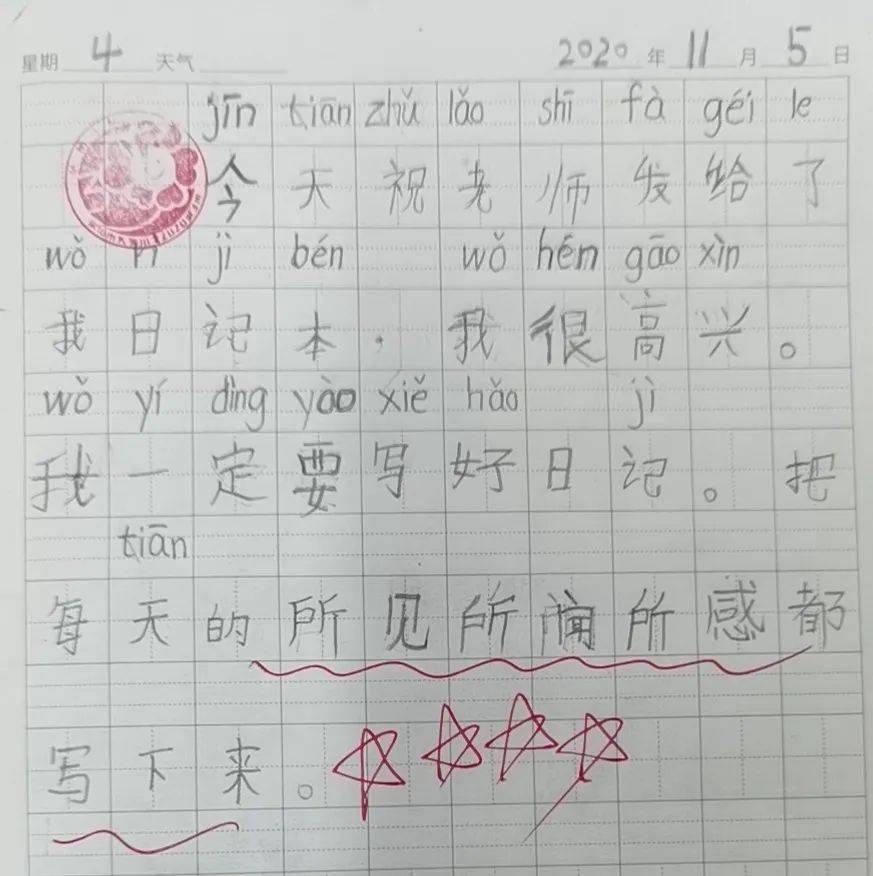 星期 4 天气 2020 年 11 月 5 日
jīn tiān zhǔ lǎo shī fà géi le
今天祝老师发给了
wǒ rì jì bén wǒ hén gāo xìn
我日记本，我很高兴。
wǒ yí dìng yào xiě hǎo jì
我一定要写好日记。把
tiān
每天的所见所闻所感都
写下来。